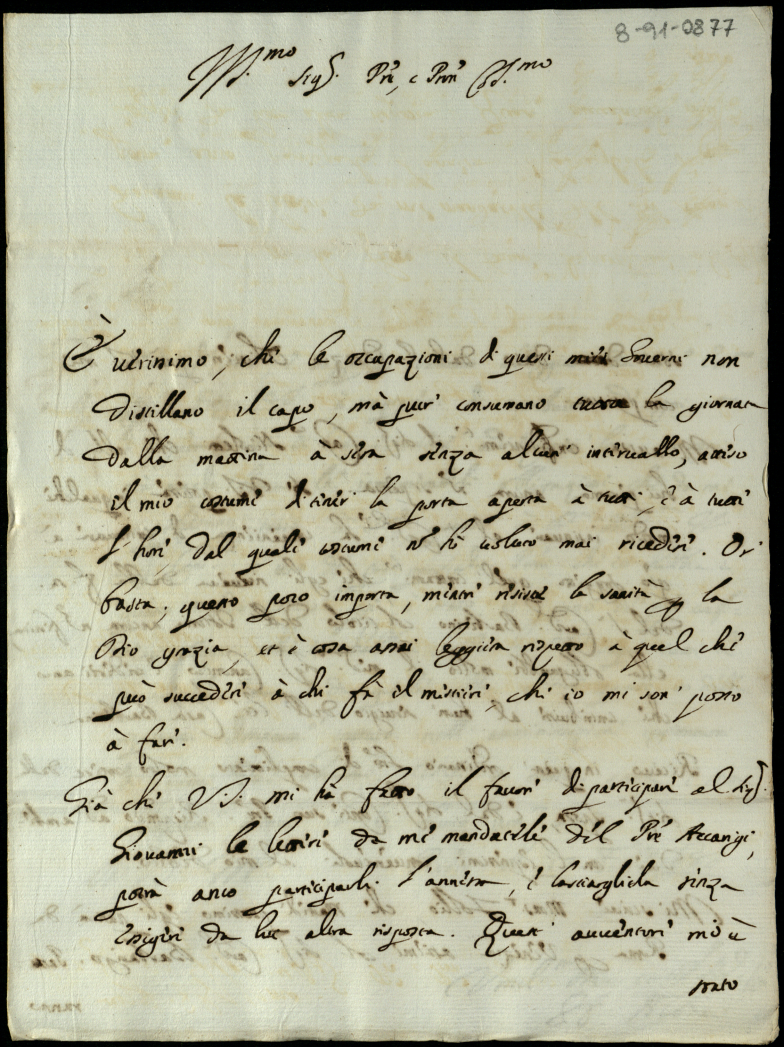 8-91-0877
Ill.mo Sig.r Prē, e Prōn Col.mo
È verissimo, che le occupazioni di questi miei Governi non
distillano il capo, mà pure consumano tutta la giornata
dalla mattina à sera senza alcun' intervallo, atteso
il mio costume di tener la porta aperta à tutti, e à tutte
l'hore, dal quale costume nò hò voluto mai recedere. Or
basta; questo poco importa, mentre resiste la sanità p la
Dio grazia, et è cosa assai leggiera rispetto à quel che
può succedere à chi fà il mestiere, che io mi son' posto
à fare.
Già che V.S. mi hà fatto il favore di participare al Sig.r
Giovanni le lettere da me mandatele del Prē Accarigi,
potrà anco participarli l'annessa, e lasciargliela senza
esigere da lui altra risposta. Quest' avventore mi è
stato